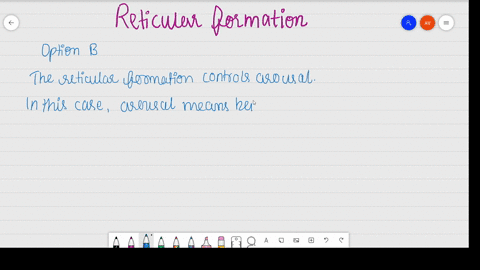 Reticular formation
Option B
The reticular formation controls arousal.
In this case, arousal means bei